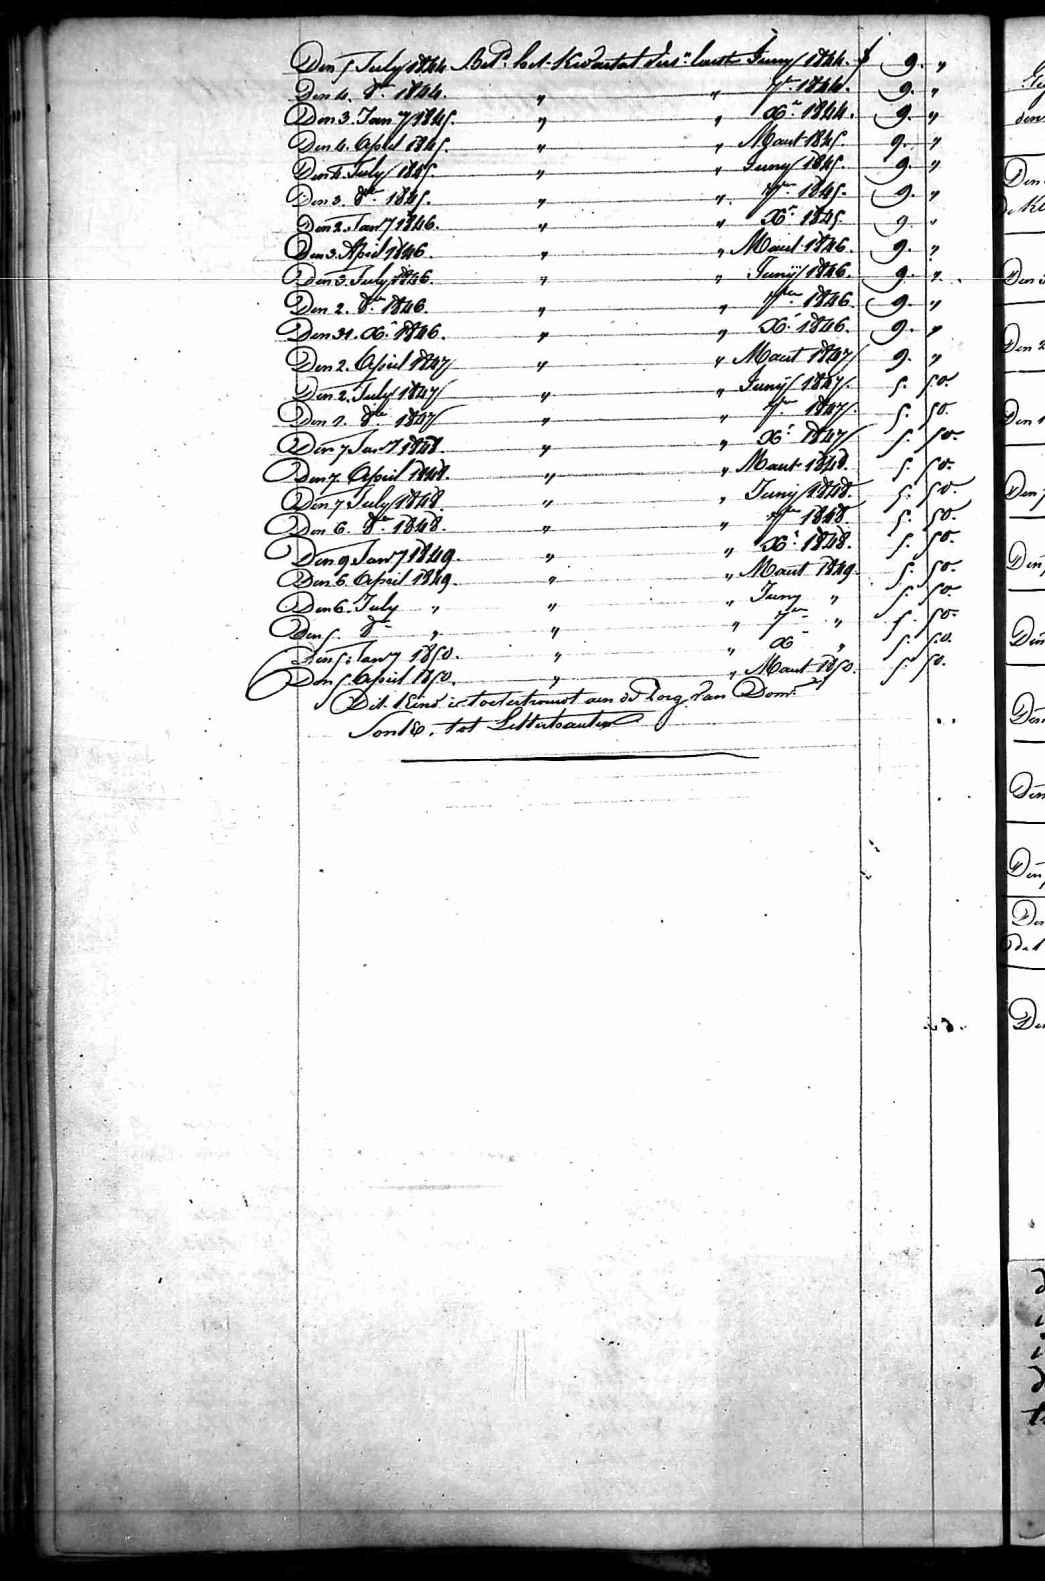 Den 5 July 1844 Bet.d het Kwartaal vers.n laatst Juny 1844. f 9. "
Den 4. 8br 1844. " " 7br 1844. 9. "
Den 3. Jany 1845. " " Xr 1844. 9. "
Den 4. April 1845. " " Maart 1845. 9. "
Den 4. July 1845. " " Juny 1845. 9. "
Den 3. 8br 1845. " " 7br 1845. 9. "
Den 2. Jany 1846. " " Xr 1845. 9. "
Den 3. April 1846. " " Maart 1846. 9. "
Den 3. July 1846. " " Junij 1846. 9. "
Den 2. 8br 1846. " " 7ber 1846. 9. "
Den 31. Xr 1846. " " Xr 1846. 9. "
Den 2. April 1847 " " Maart 1847 9. "
Den 2. July 1847 " " Junij 1847. 5. 50.
Den 1. 8br 1847 " " 7br 1847. 5. 50.
Den 7 Jany 1848. " " Xr 1847 5. 50.
Den 7. April 1848. " " Maart 1848. 5. 50.
Den 7 July 1848. " " Junij 1848. 5. 50.
Den 6. 8br 1848. " " 7ber 1848. 5. 50.
Den 9 Jany 1849. " " Xr 1848. 5. 50.
Den 6. April 1849. " " Maart 1849. 5. 50.
Den 6. July " " " Juny " 5. 50.
Den 5. 8r " " " 7br " 5. 50.
Den 5. Jany 1850. " " X " 5. 50.
Den 5. April 1850. " " Maart 1850. 5. 50.
Dit Kind is toevertrouwt aen de Zorg van Dom.
tot Letterhautem